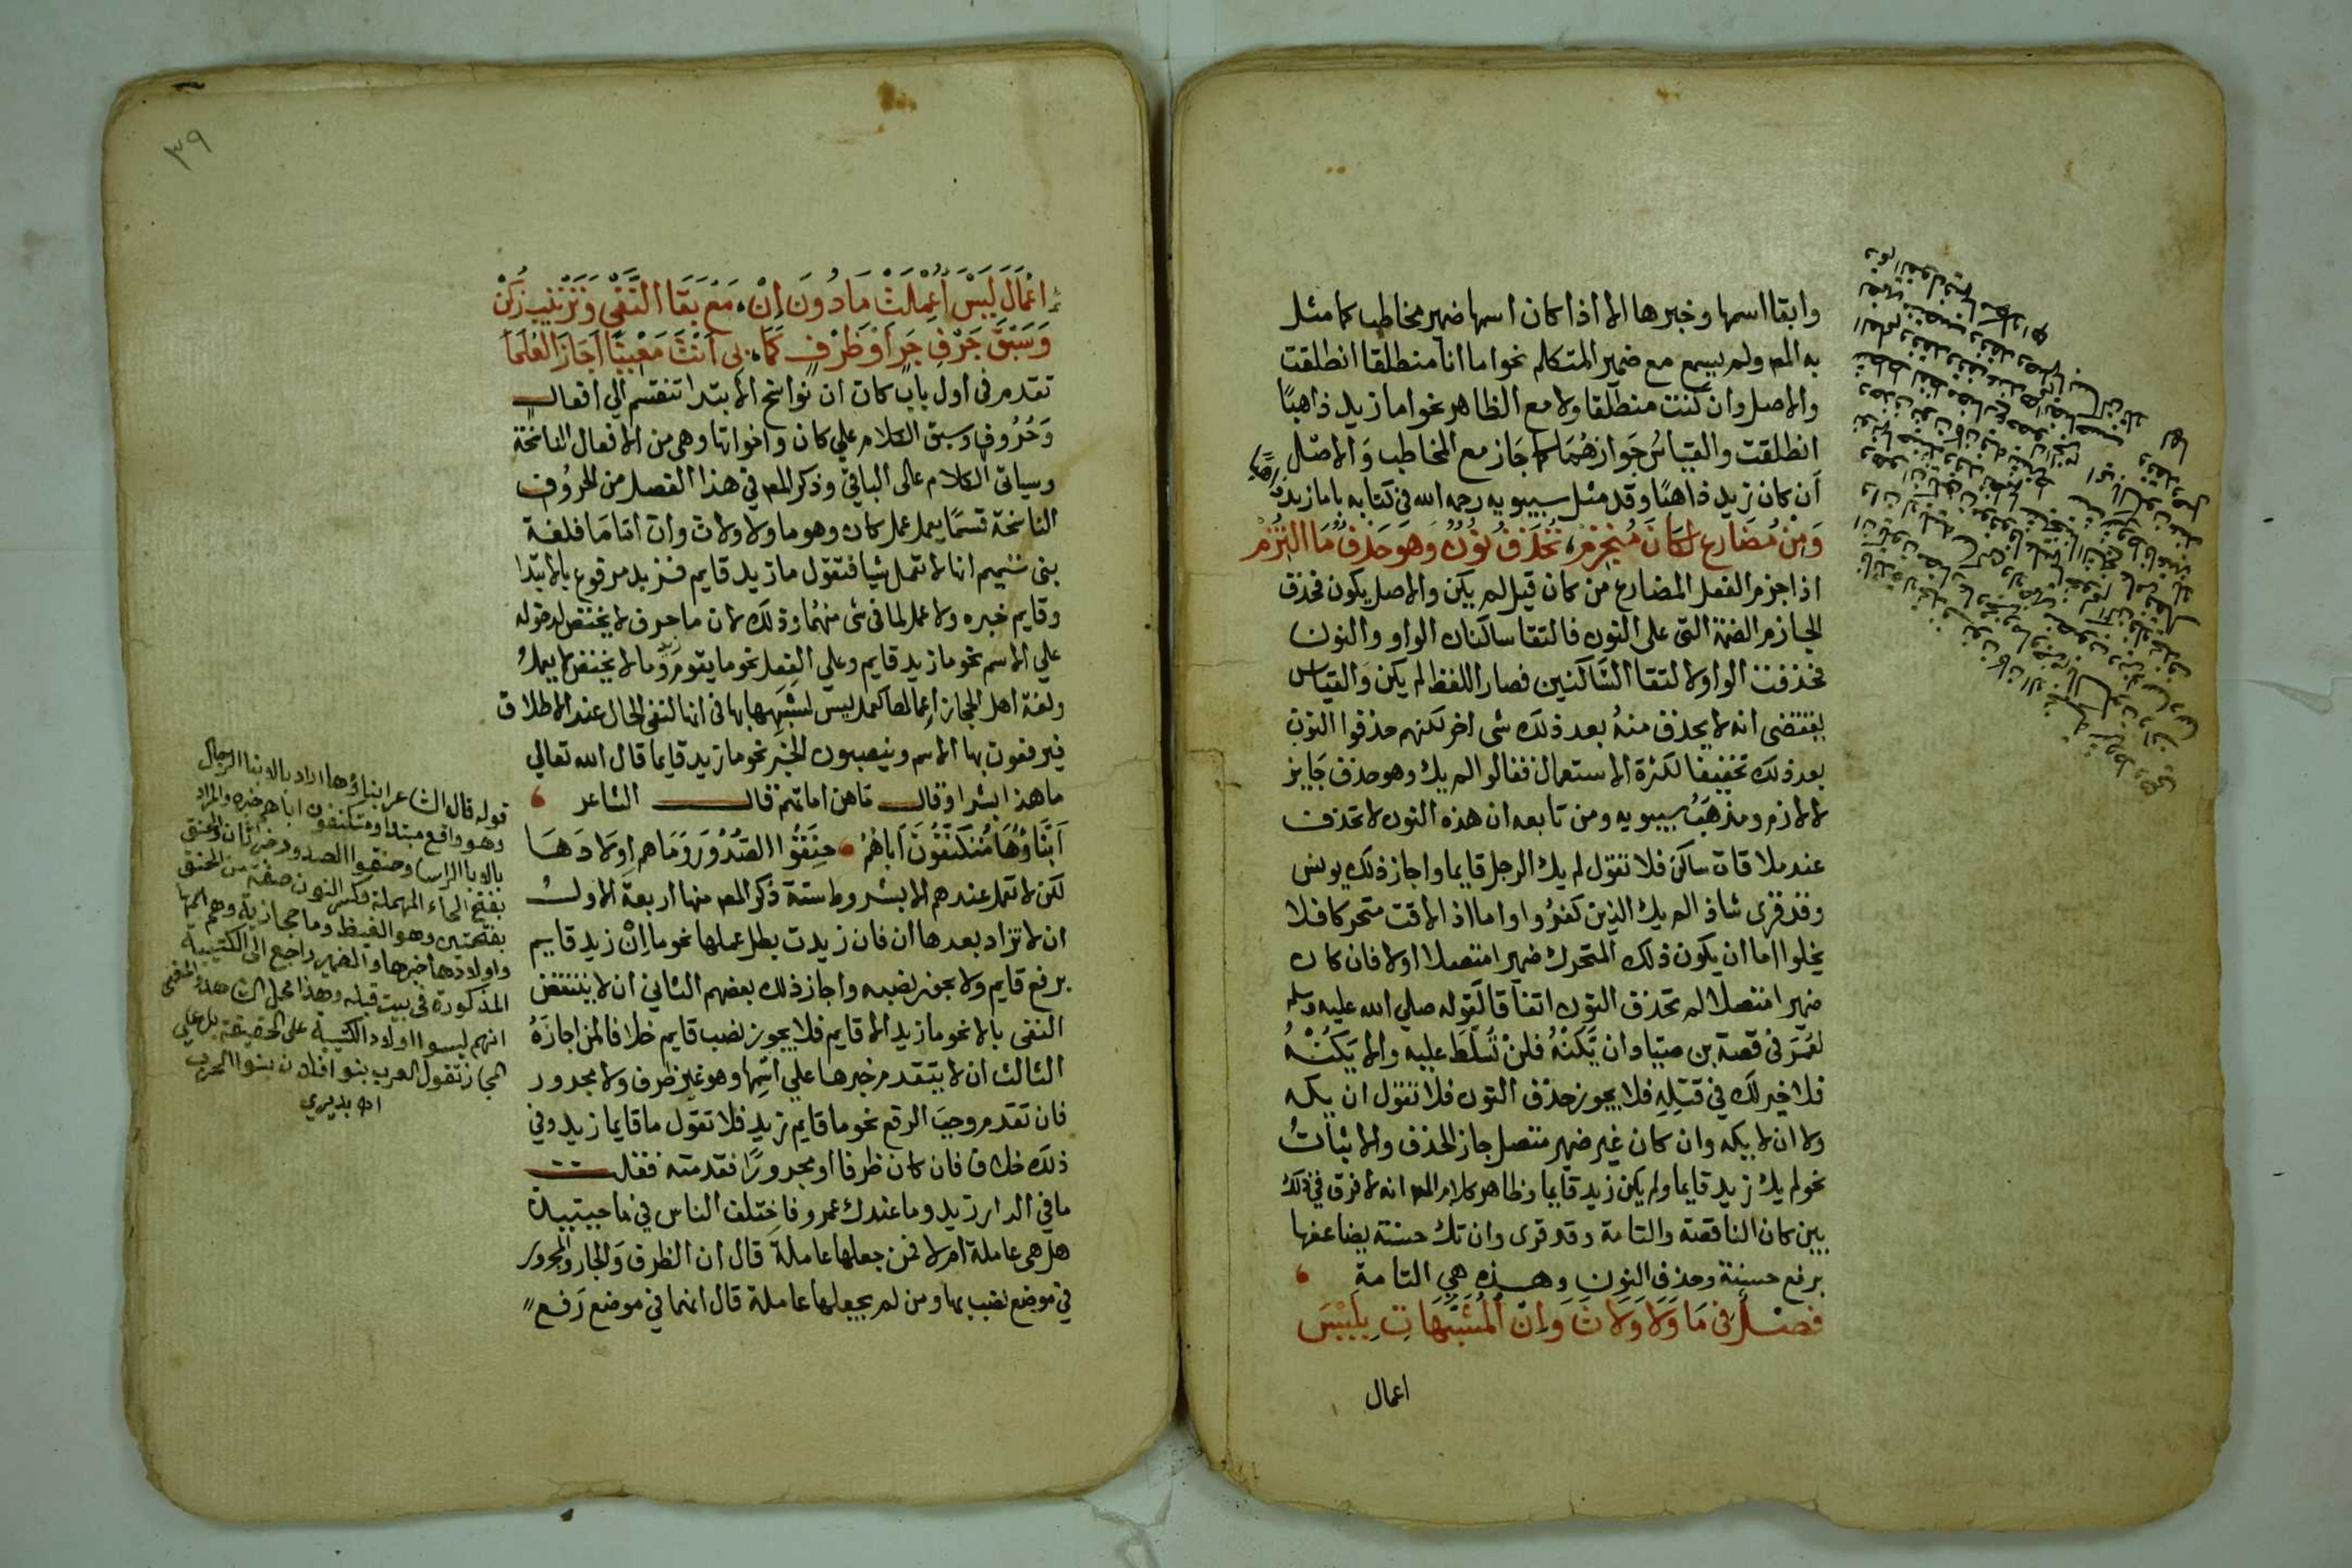 وابقا اسمها وخبرها الا اذا كان اسمها ضمير مخاطب كما مثل
به المص ولم يسمع مع ضمير المتكلم نحو اما انا منطلقا انطلقت
والاصل وان كنت منطلقا ولا مع الظاهر نحو اما زيد ذاهبًا
انطلقت والقياسُ جَوازهُمَا كما جَاز مع المخاطب وَالاصْل
أن كان زيد ذاهبًا وقد مثل سيبويه رحمه الله في كتابه باما زيد ذاهبًا
وَمِنْ مُضَارعٍ لكَانَ مُنجَزِمْ، تُحْذَفُ نُونٌ وَهوَ حَذفٌ مَا التُزِمْ
اذا جزم الفعل المضارع من كان قيل لم يكن والاصل يكون فحذف
الجازم الضمة التي على النون فالتقا ساكنان الواو والنون
فحذفت الواو لالتقا السَّاكنين فصار اللفظ لم يكن وَالقياس
يقتضى انه لا يحذف منهُ بعد ذلك شى اخر لكنهم حذفوا النون
بعد ذلك تخفيفا لكثرة الاستعمال فقالوا لم يك وهو حذف جَايز
لا لازم ومذهَبُ سيبويه ومن تابعه ان هذه النون لا تحذف
عند ملاقات ساكن فلا تقول لم يك الرجل قايما واجاز ذلك يونس
وقد قرى شاذا لم يك الذين كفرُوا واما اذا لاقت متحركا فلا
يخلوا اما ان يكون ذلك المتحرك ضميرا متصلا اولا فان كان
ضميرا متصلا لم تحذف النون اتفاقا لقوله صلي الله عليه وسلم
لعُمَرَ في قصة بن صيّاد ان يَكُنْهُ فلنْ تُسَلّطَ عليه والا يَكُنْهُ
فلا خير لك في قتِلِهِ فلا يجوز حذف النون فلا تقول ان يكه
ولا ان لا يكه وان كان غير ضمير متصل جاز الحذف والاثباتُ
نحو لم يك زيد قايما ولم يكن زيد قايما وظاهر كلام المص انه لا فرق في ذلك
بين كان الناقصة والتامة وقد قرى وان تك حسنة يضاعفها
برفع حسنة وحذف النون وهذه هي التامة
فصْل في مَا وَلا وَلاتَ وَإنْ المُشَبَّهَاتِ بِلَيْسَ
اعمال
٣٩
اعْمَالَ لَيْسَ أُعْمِلَتْ مَا دُونَ اِنْ، مَعَ بَقَا النَّفْي وَتَرْتيبٍ زُكِنْ
وَسَبْقَ حَرْفِ جَرٍ أوْ ظَرْفٍ كَمَا، بي اَنْتَ مَعْنيّا اَجَازَ العُلَمَا
تقدم في اول باب كان ان نواسخ الابتدا تنقسم الي افعال
وَحُرُوف وسبق الكلام علي كان واخواتها وهي من الافعال الناسخة
وسياتي الكلام على الباقي وذكر المص في هذا الفصل من الحرُوف
الناسخة قسمًا يعمل عمل كان وهو ما ولا ولات وان اما مَا فلغة
بنى تميم انها لا تعمل شيا فتقول ما زيد قايم فزيد مرفوع بالابتدا
وقايم خبره ولا عمل لما في شى منهُما وذلك لان ما حرف لا يختص لدخوله
علي الاسم نحو ما زيد قايم وعلي الفعل نحو ما يقوم زيد وما لا يختص لا يعمل
ولغة اهل الحجاز اِعمالها كعمل ليس لشبهها بها في انها لنفى الحال عند الاطلاق
فيرفعون بها الاسم وينصبون الخبر نحو ما زيد قايما قال الله تعالي
ما هذا بشرا وقال ماهن امهاتهم قال الشاعر
اَبنَاؤُهَا مُتَكَنّفُونَ اَبَاهُمُ حَنِقُوا الصُدُوْرَ وَمَا هم اوِلادَهَا
لكن لا تعمل عندهم الا بشروط ستة ذكر المص منها اربعة الاول
ان لا تزاد بعدها ان فان زيدت بطل عملها نحو ما اِنْ زيد قايم
برفع قايم ولا يجوز نصبه واجاز ذلك بعضهم الثاني ان لا ينتقض
النفى بالا نحو ما زيد الا قايم فلا يجوز نصب قايم خلافا لمن اجازهُ
الثالث ان لا يتقدم خبرها علي اسْمِها وهو غير ظرف ولا مجرور
فان تقدم وجبَ الرفع نحو ما قايم زيد فلا تقول ما قايما زيد وفي
ذلك خلاف فان كان ظرفا او مجرورًا فقدمته فقلت
ما في الدار زيد وما عندك عمرو فاختلف الناس في ما حينئذ
هل هي عاملة ام لا فمن جعلها عاملة قال ان الظرف وَالجار والمجرور
في موضع نصب بها ومن لم يجعلها عاملة قال انهما في موضع رَفع
قوله قال الشاعر ابناؤها اراد بالابنا الرجال
وهو واقع مبتدا ومتكنفون اباهم خبره والمراد
بالابا الراس وحنقوا الصدور خبر ثان والحنق
بفتح الحاء المهملة وكسر النون صفة من الحنق
بفتحتين وهو الغيظ وما حجازية وهم اسمها
واولادها خبرها والضمير راجع الى الكتيبة
المذكورة في بيت قبله وهذا محل الشاهد والمعنى
انهم ليسوا اولاد الكتيبة على الحقيقة بل على
المجاز تقول العرب بنوا فلان بنوا الحرب